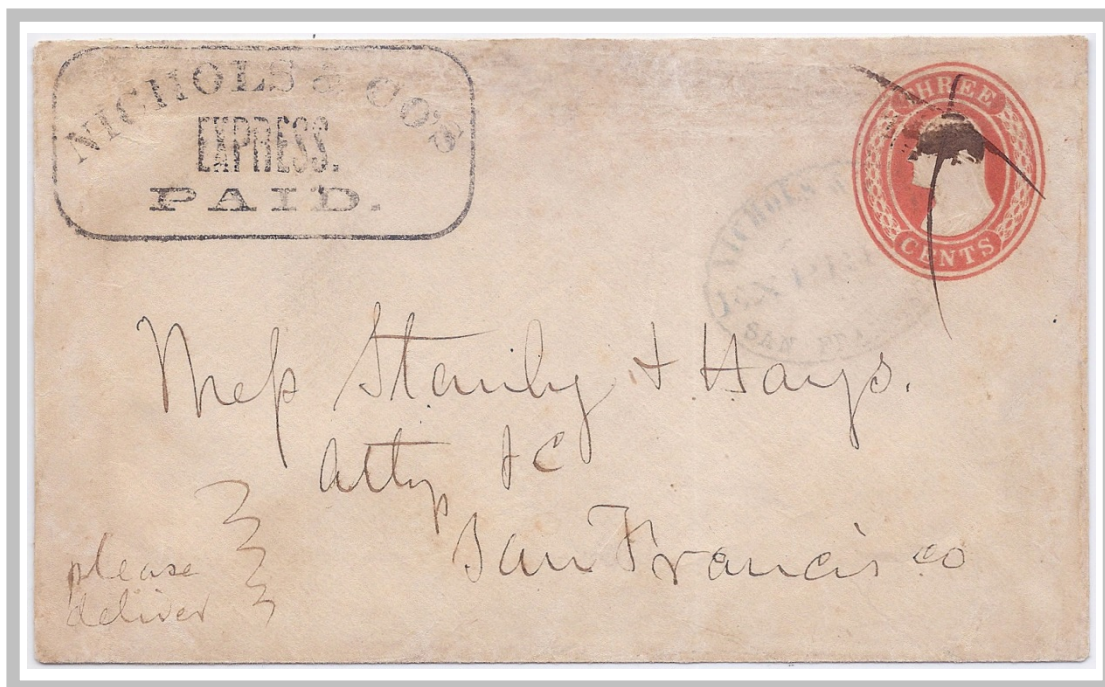 NICHOLS & CO'S
EXPRESS.
PAID.
THREE
CENTS
NICHOLS
EXPRE
SAN FRA
Mess Stanly & Hays.
Attys &C
San Francisco
please
deliver